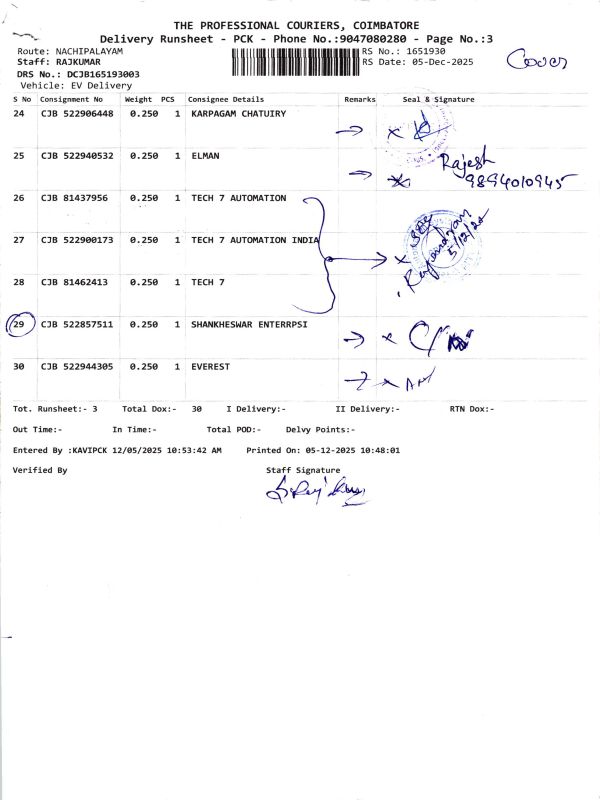 THE PROFESSIONAL COURIERS, COIMBATORE
Delivery Runsheet - PCK - Phone No.:9047080280 - Page No.:3
Route: NACHIPALAYAM RS No.: 1651930
Staff: RAJKUMAR RS Date: 05-Dec-2025
Cover
DRS No.: DCJB165193003
Vehicle: EV Delivery
S No Consignment No Weight PCS Consignee Details Remarks Seal & Signature
24 CJB 522906448 0.250 1 KARPAGAM CHATUIRY
25 CJB 522940532 0.250 1 ELMAN Rajesh
9894010945
26 CJB 81437956 0.250 1 TECH 7 AUTOMATION
27 CJB 522900173 0.250 1 TECH 7 AUTOMATION INDIA
5/12/25
28 CJB 81462413 0.250 1 TECH 7
29 CJB 522857511 0.250 1 SHANKHESWAR ENTERRPSI
30 CJB 522944305 0.250 1 EVEREST
Tot. Runsheet:- 3 Total Dox:- 30 I Delivery:- II Delivery:- RTN Dox:-
Out Time:- In Time:- Total POD:- Delvy Points:-
Entered By :KAVIPCK 12/05/2025 10:53:42 AM Printed On: 05-12-2025 10:48:01
Verified By Staff Signature